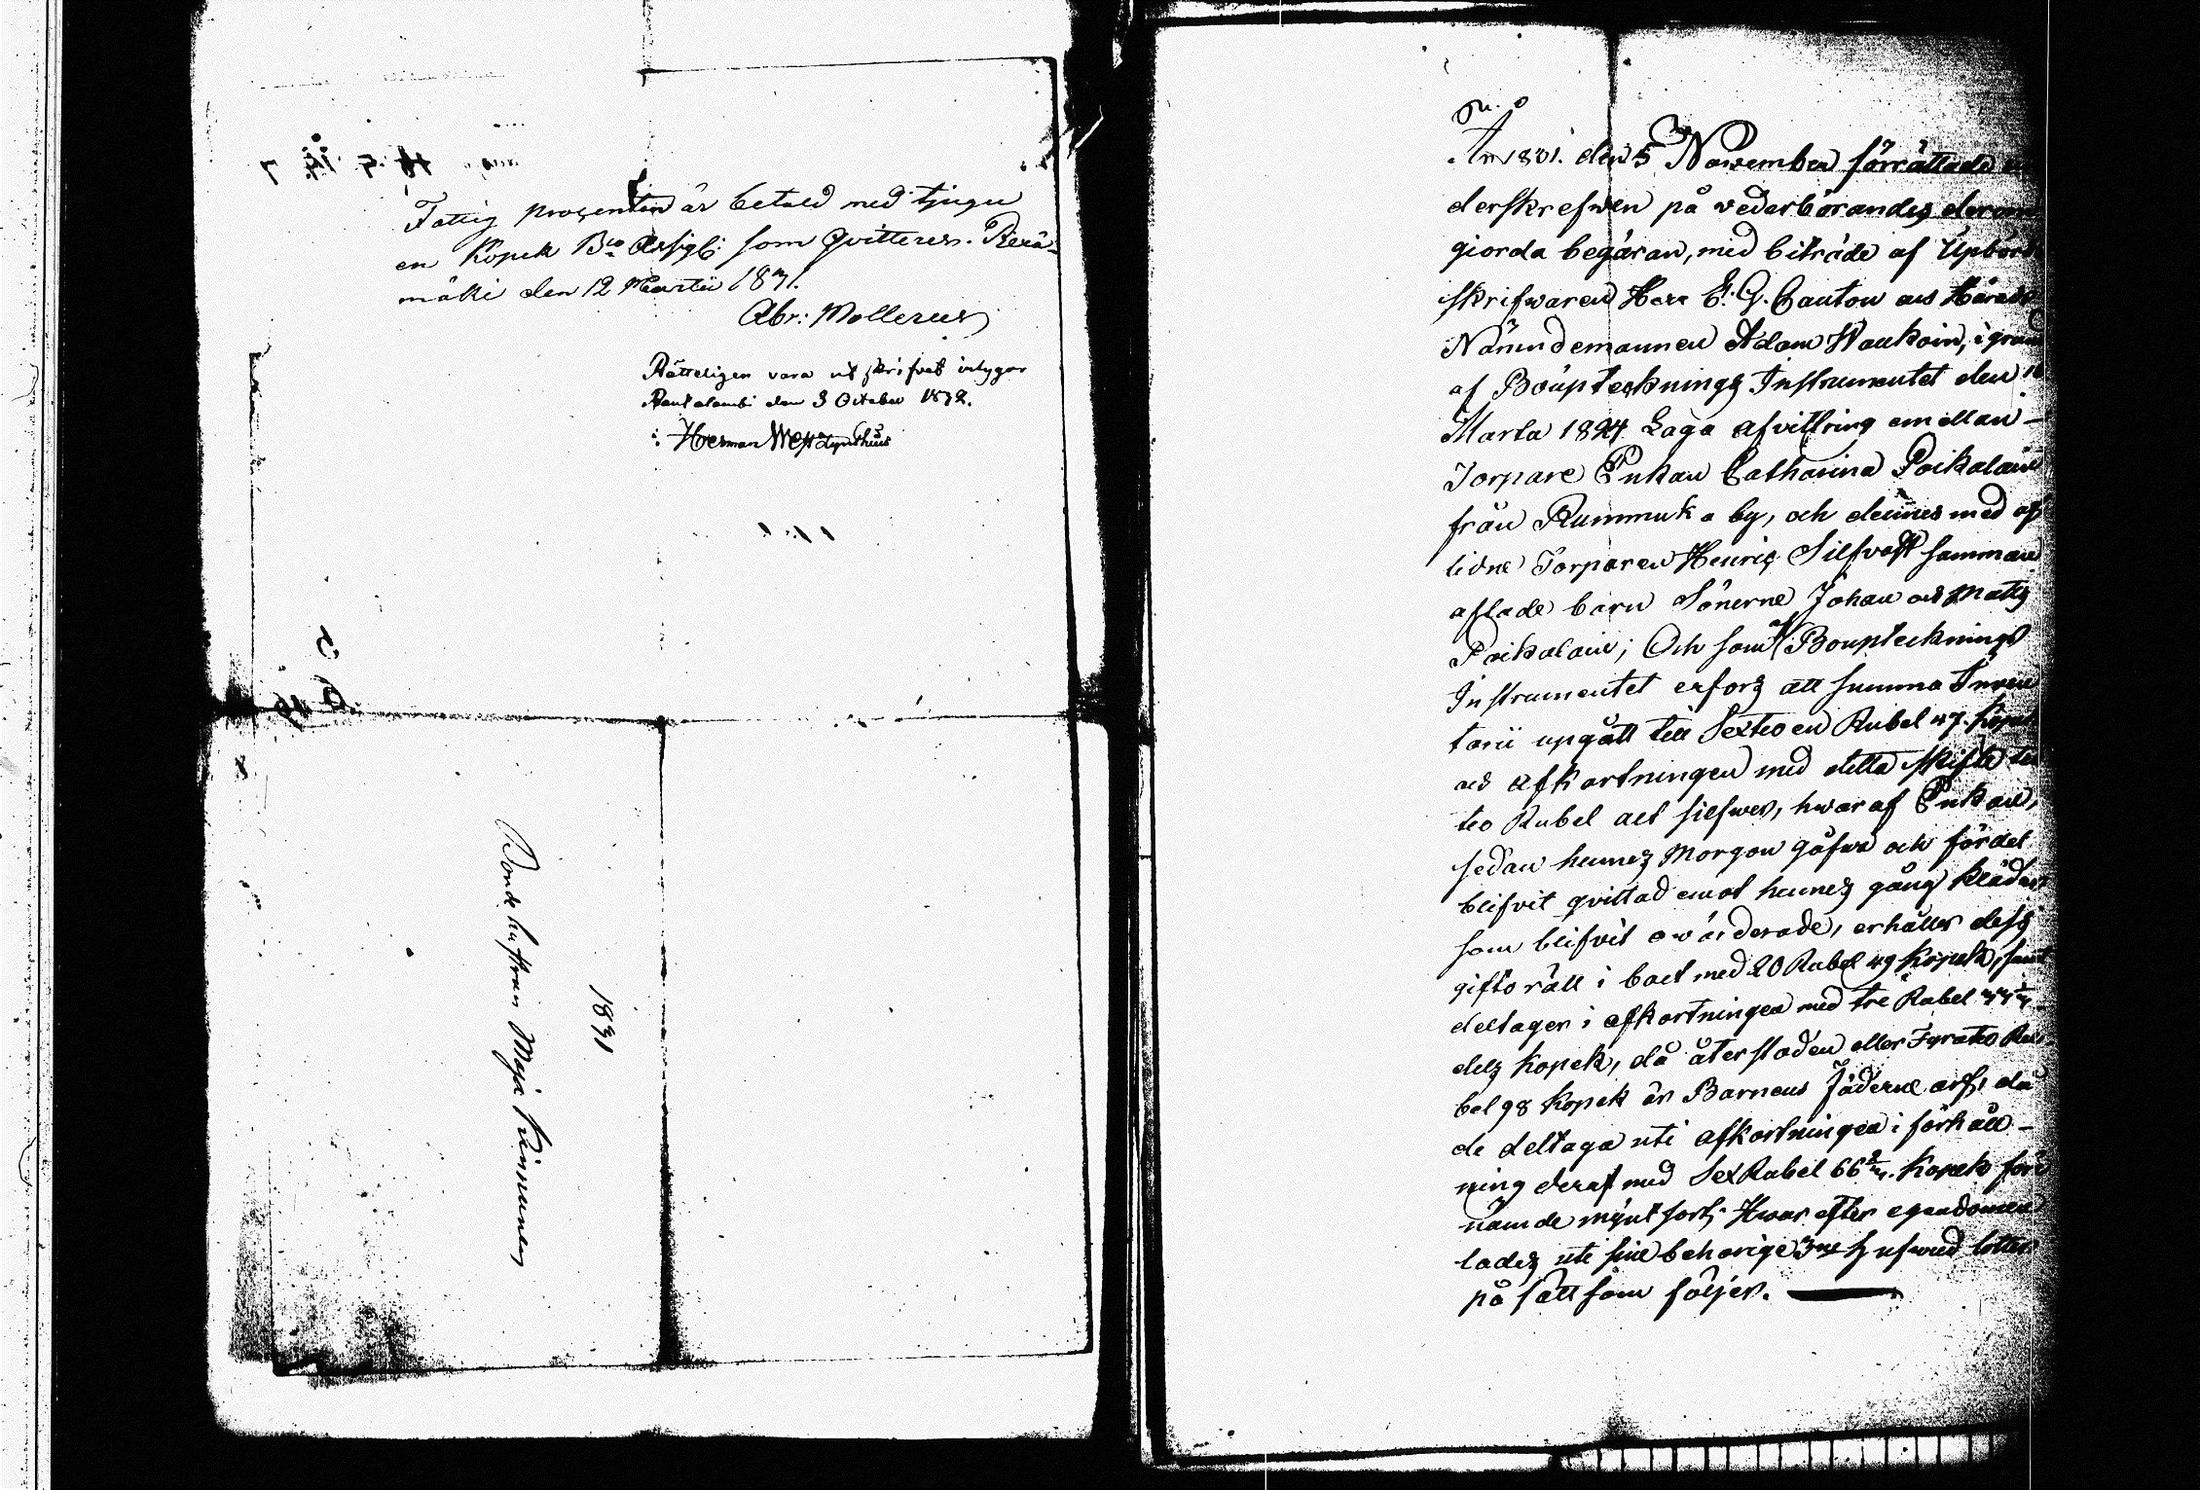 Fattig procenten är betald med tjugu
en Kopek B:co Assign: som qvitteres. Pierä-
mäki den 12 Martii 1831.
Abr: Mollerus
Rätteligen vara utskrifvet intygar
Rautalambi den 3 October 1832.
Herman West
1831
Bonde hustrun Maja
År 1831. den 5 November förrättade un
derskrefwen på vederbörandes derom
giorda begäran, med biträde af Upbörds
skrifwaren Herr E: G. Canton och Härads
Nämndemannen Adam Waukoin, i grund
af Bouptecknings Instrumentet den 16
Martii 1824 Laga afvittring emellan
Torpare Enkan Catharina Poikalain
från Rummuka by, och dennes med af
lidne Torparen Henric Silfvast samman
aflade barn Sönerne Johan och Matts
Poikalain; Och som af Bouptecknings
Instrumentet erfors att summa Inven
tarii upgått till Sextioen Rubel 47. Kopek
och afkortningen med detta skifte till
tio Rubel allt silfwer, hwaraf Enkan,
sedan hennes Morgon gåfwa och fördel
blifvit qvittad emot hennes gång kläder
som blifvit owärderade, erhåller dess
gifto rätt i boet med 20 Rubel 49 Kopek, samt
deltager i afkortningen med tre Rubel 33 1/3
dels kopek, då återstoden eller Fyratio Ru-
bel 98 Kopek är Barnens Fäderne arf, då
de deltaga uti afkortningen i förhåll-
ning deraf med Sex Rubel 66 2/3. Kopek före
nämde mynt sort; Hwarefter egendomen
lades uti sine behörige 3ne hufwud lotter
på sätt som följer.